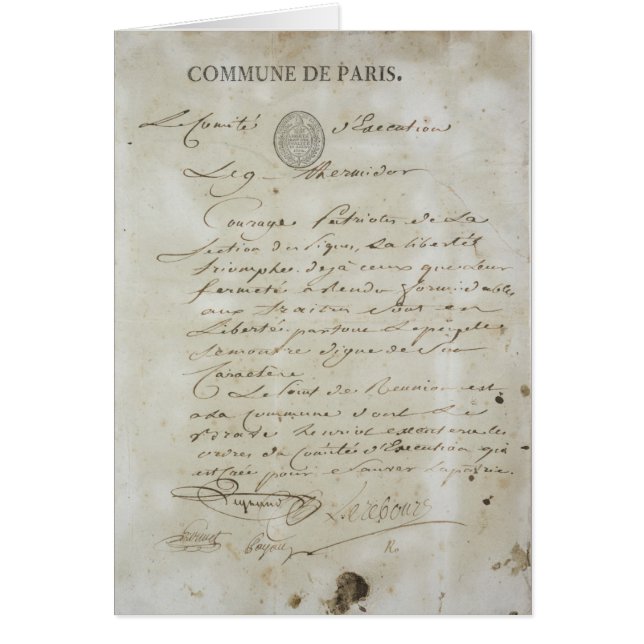 COMMUNE DE PARIS.
Le Comité d'Execution
Le 9 Thermidor
Courage Patriotes de La
Section des Piques, La liberté
triomphe. deja ceux que leur
fermeté a rendu formidables
aux traitres sont en
Liberté. partout Le peuple
se montre digne de son
Caractère
Le Point de Reunion est
a La Commune dont Le
brave henriot executera les
ordres du Comité d'Execution qui
est créé pour sauver La patrie.
Legrand Lerebours
Payan Ro